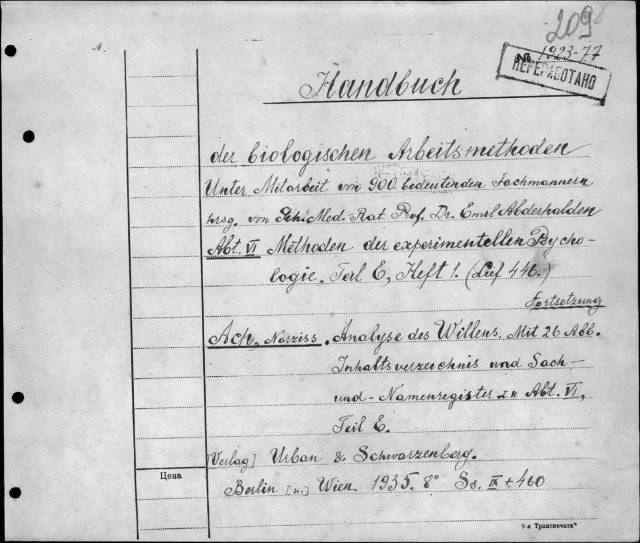 209
1923-77
ПЕРЕРАБОТАНО
Handbuch
der biologischen Arbeitsmethoden
Unter Mitarbeit von 900 bedeutenden Fachmännern
hrsg. von Geh. Med. Rat Prof. Dr. Emil Abderhalden
Abt. VI Methoden der experimentellen Psycho-
logie, Teil E, Heft 1. (Lief 446.)
Fortsetzung
Ach, Narziss. Analyse des Willens. Mit 26 Abb.
Inhaltsverzeichnis und Sach-
und-Namenregister zu Abt. VI,
Teil E.
[Verlag] Urban & Schwarzenberg.
Цена
Berlin [u.] Wien 1935. 8° Ss. IX + 460
5-я Транспечать"